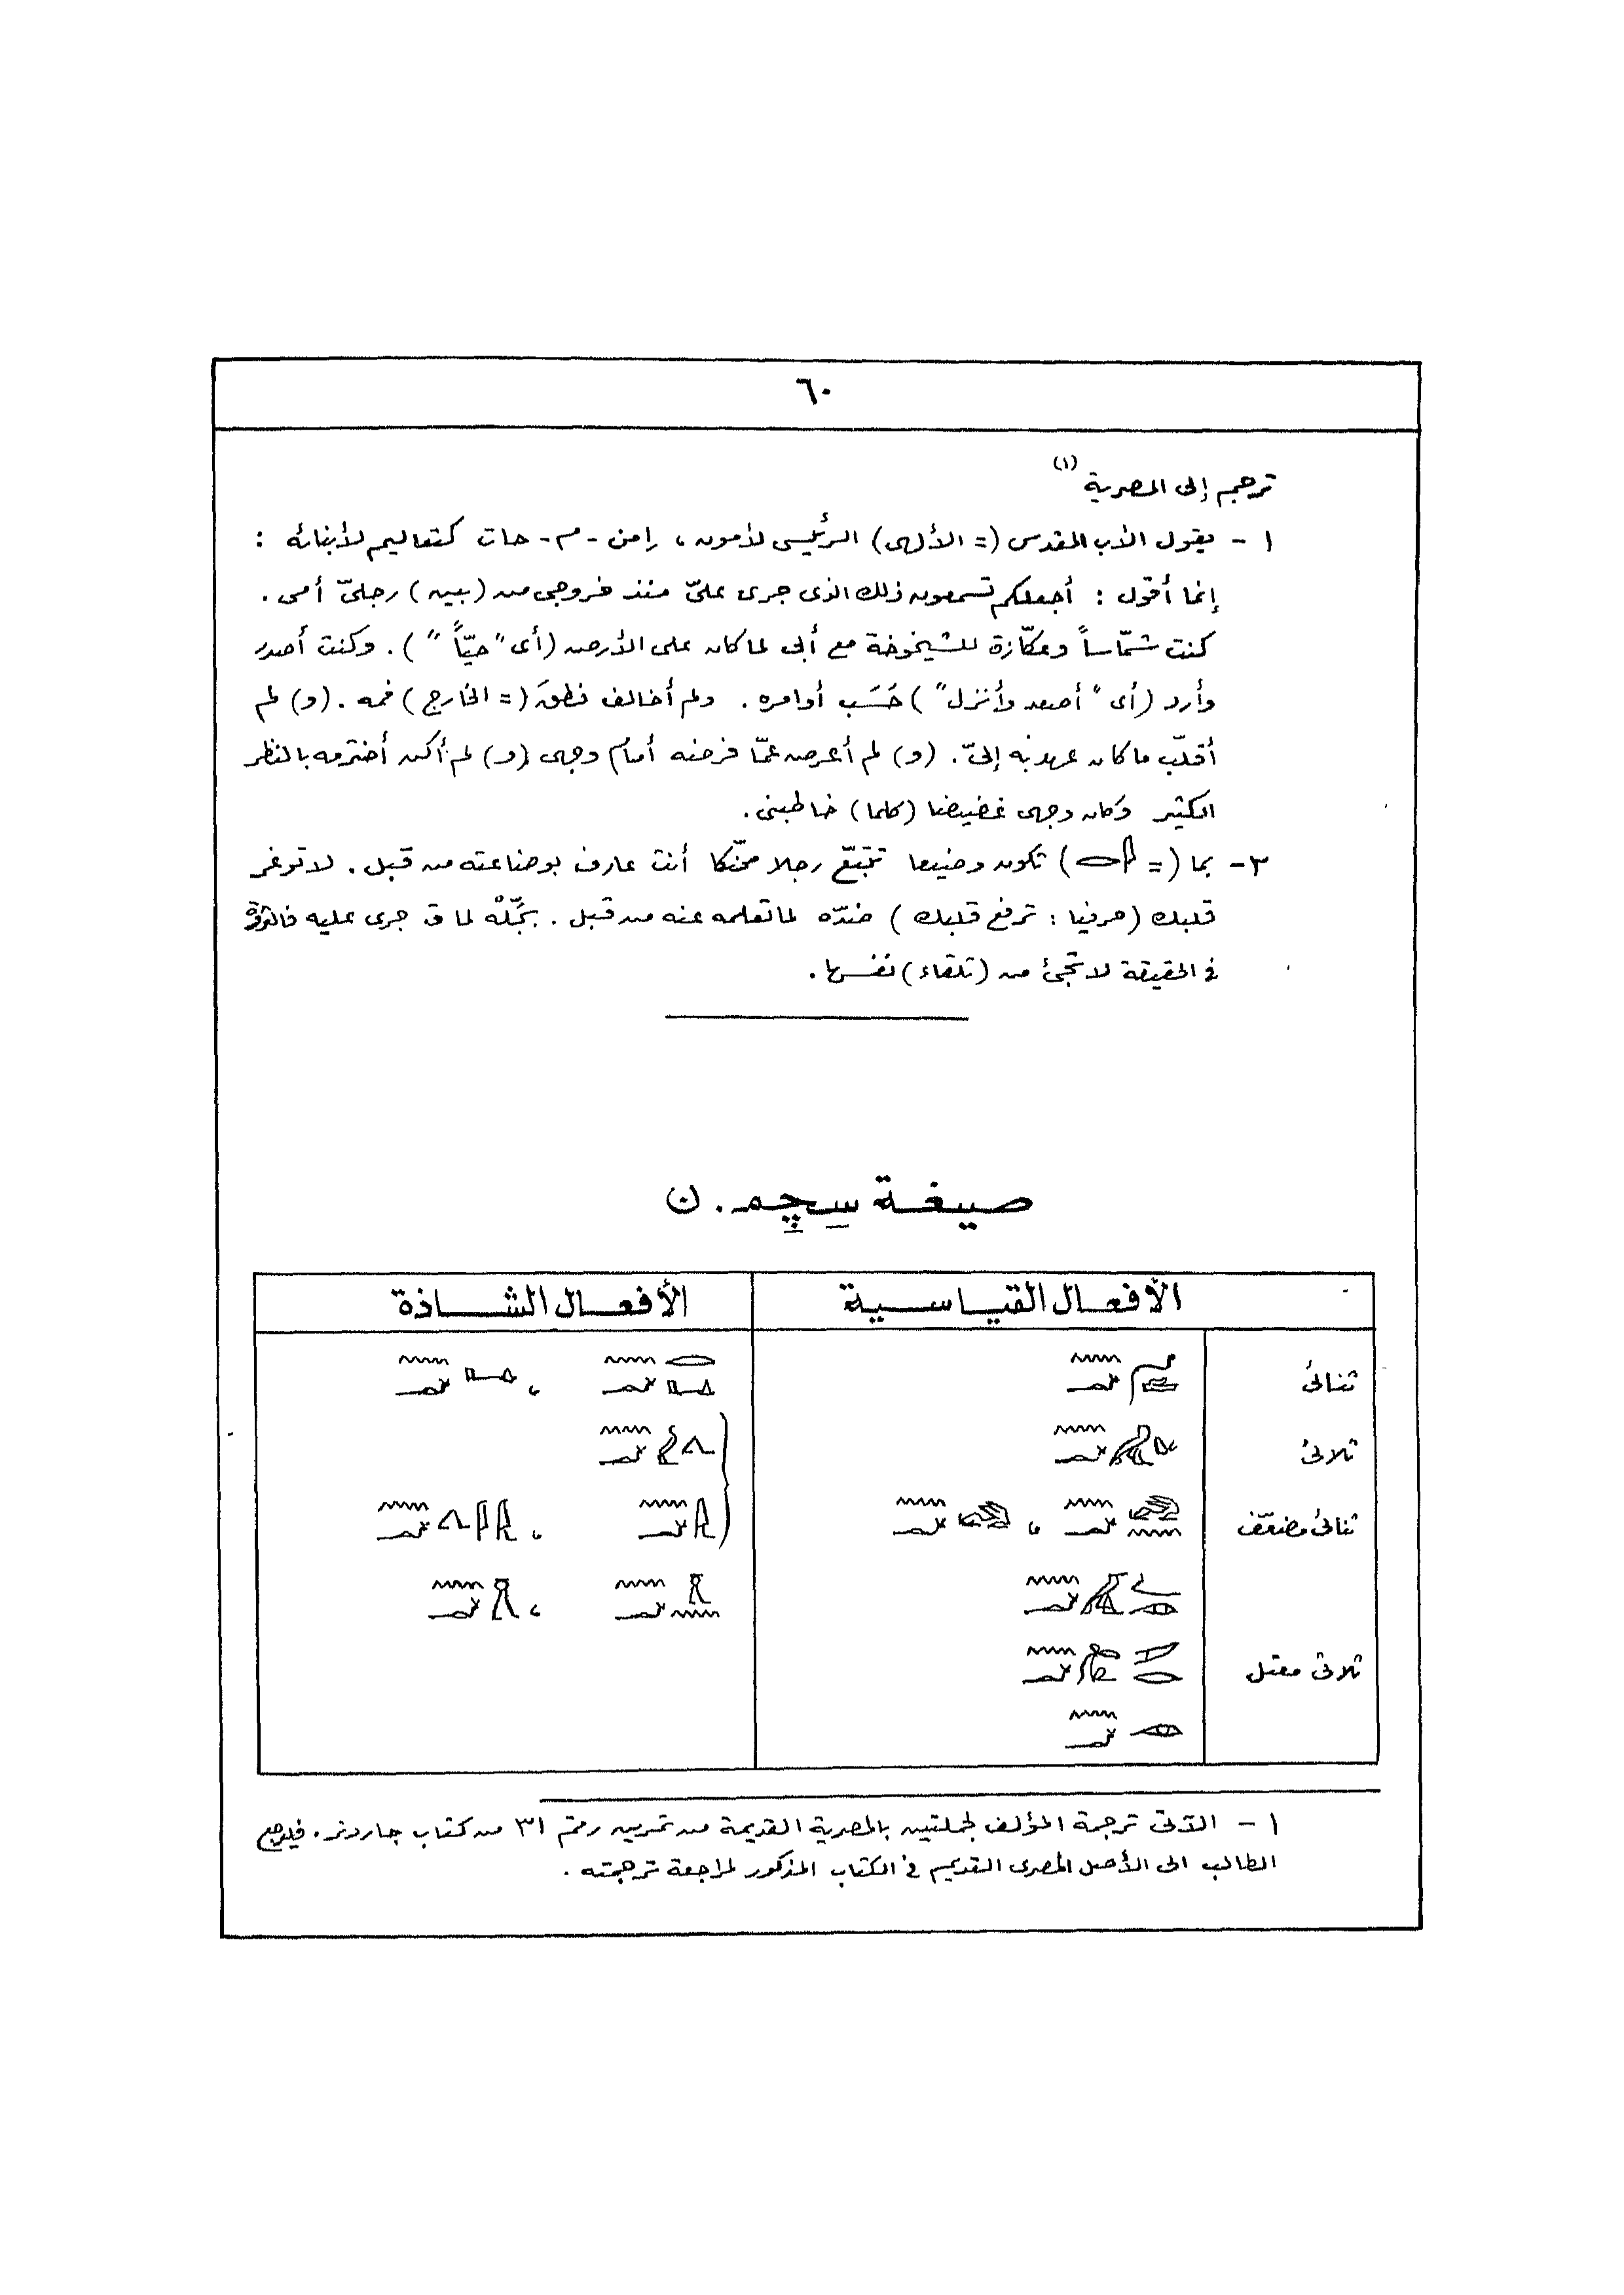 ٦٠
ترجم إلى المصرية (١)
١ - يقول الأب المقدس (= الألهى) الرئيسى لأمون، إمن - م - حات كتعاليم لأبنائه :
إنما أقول : أجعلكم تسمعون ذلك الذى جرى علىّ منذ خروجى من (بين) رجلىّ أمى .
كنت شمّاساً وعكّازة للشيخوخة مع أبى لما كان على الأرض (أى "حيّاً") . وكنت أصدر
وأرد (أى "أصعد وأنزل") حَسَب أوامره . ولم أخالف نطقَ (= الخارج) فمه . (و) لم
أقلّب ما كان عهد به إلىّ . (و) لم أعرض عمّا فرضه أمام وجهى (و) لم أكن أخترمه بالنظر
الكثير وكان وجهى غضيضا (كلما) خاطبنى .
٢ - بما (= 𓇋𓂋) تكون وضيعا تتبّع رجلا محنّكا أنت عارف بوضاعته من قبل . لا توغر
قلبك (حرفيا : ترفع قلبك) ضدّه لما تعلمه عنه من قبل . بجّله لما جرى عليه فالثروة
فى الحقيقة لا تجئ من (تلقاء) نفسها .
صيغة سچم . ن
الأفعال القياسية الأفعال الشاذة
ثنائى
ثلاثى
ثنائى مضعّف
ثلاثى معتل
١ - الآتى ترجمة المؤلف لجملتين بالمصرية القديمة من تمرين رقم ٣١ من كتاب جاردنر . فليرجع
الطالب الى الأصل المصرى القديم فى الكتاب المذكور لمراجعة ترجمته .